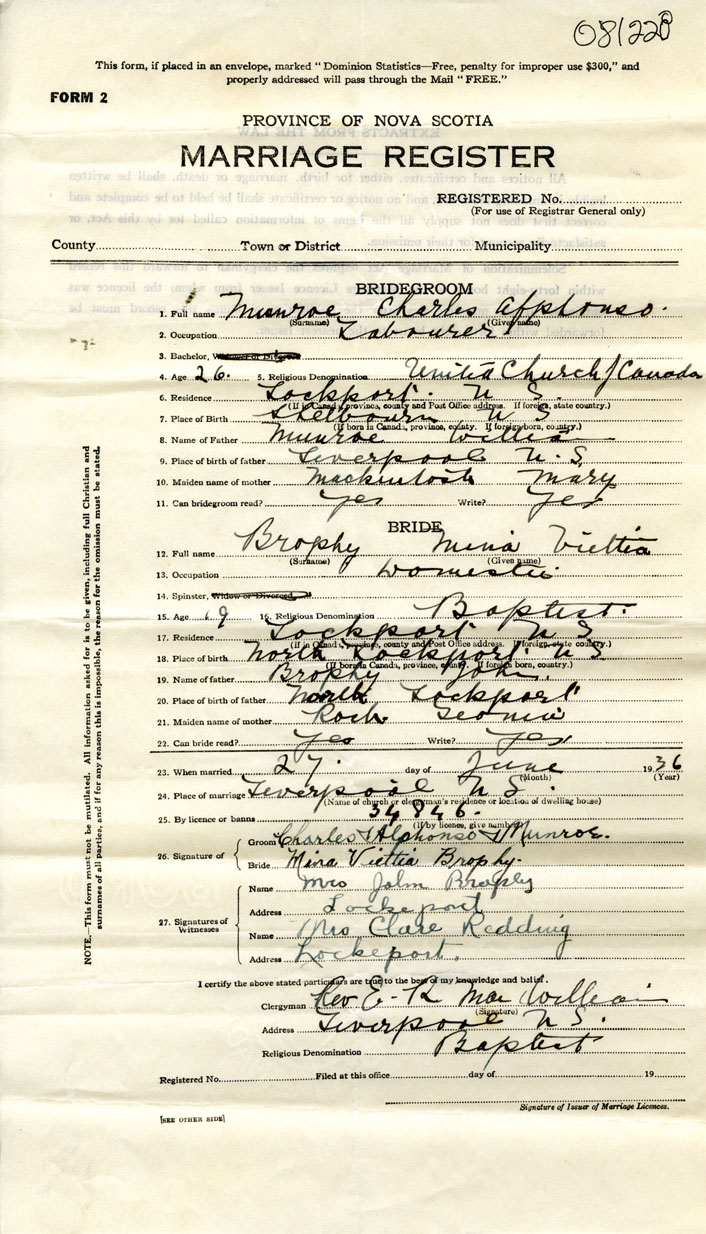 08122B
This form, if placed in an envelope, marked "Dominion Statistics—Free, penalty for improper use $300," and
properly addressed will pass through the Mail "FREE."
FORM 2
PROVINCE OF NOVA SCOTIA
MARRIAGE REGISTER
REGISTERED No.
(For use of Registrar General only)
County Town or District Municipality
BRIDEGROOM
1. Full name Munroe Charles Alphonso.
(Surname) (Given name)
2. Occupation Labourer
3. Bachelor, Widower or Divorced
4. Age 26. 5. Religious Denomination United Church / Canada
6. Residence Lockport. N S.
(If in Canada, province, county and Post Office address. If foreign, state country.)
7. Place of Birth Shelbourn N S.
(If born in Canada, province, county. If foreign born, country.)
8. Name of Father Munroe William
9. Place of birth of father Liverpool N. S.
10. Maiden name of mother Mackintosh Mary
11. Can bridegroom read? Yes Write? Yes
BRIDE
12. Full name Brophy Mina Viettia
(Surname) (Given name)
13. Occupation Domestic
14. Spinster, Widow or Divorced
15. Age 19 16. Religious Denomination Baptist.
17. Residence Lockport N S
(If in Canada, province, county and Post Office address. If foreign, state country.)
18. Place of birth North Lockport N S
(If born in Canada, province, county. If foreign born, country.)
19. Name of father Brophy John.
20. Place of birth of father North Lockport
21. Maiden name of mother
22. Can bride read? Yes Write? Yes
23. When married 27. day of June 1936
(Month) (Year)
24. Place of marriage Liverpool N S.
(Name of church or clergyman's residence or location of dwelling house)
25. By licence or banns 34846.
(If by licence, give number)
26. Signature of
Groom Charles Alphonso Munroe.
Bride Mina Viettia Brophy.
27. Signatures of Witnesses
Name Mrs John Brophy
Address Lockeport
Name Mrs Clare Redding
Address Lockeport.
I certify the above stated particulars are true to the best of my knowledge and belief.
Clergyman Rev E-R Mac William
(Signature)
Address Liverpool N S.
Religious Denomination Baptist
Registered No. Filed at this office day of 19
Signature of Issuer of Marriage Licences.
[SEE OTHER SIDE]
NOTE.—This form must not be mutilated. All information asked for is to be given, including full Christian and
surnames of all parties, and if for any reason this is impossible, the reason for the omission must be stated.